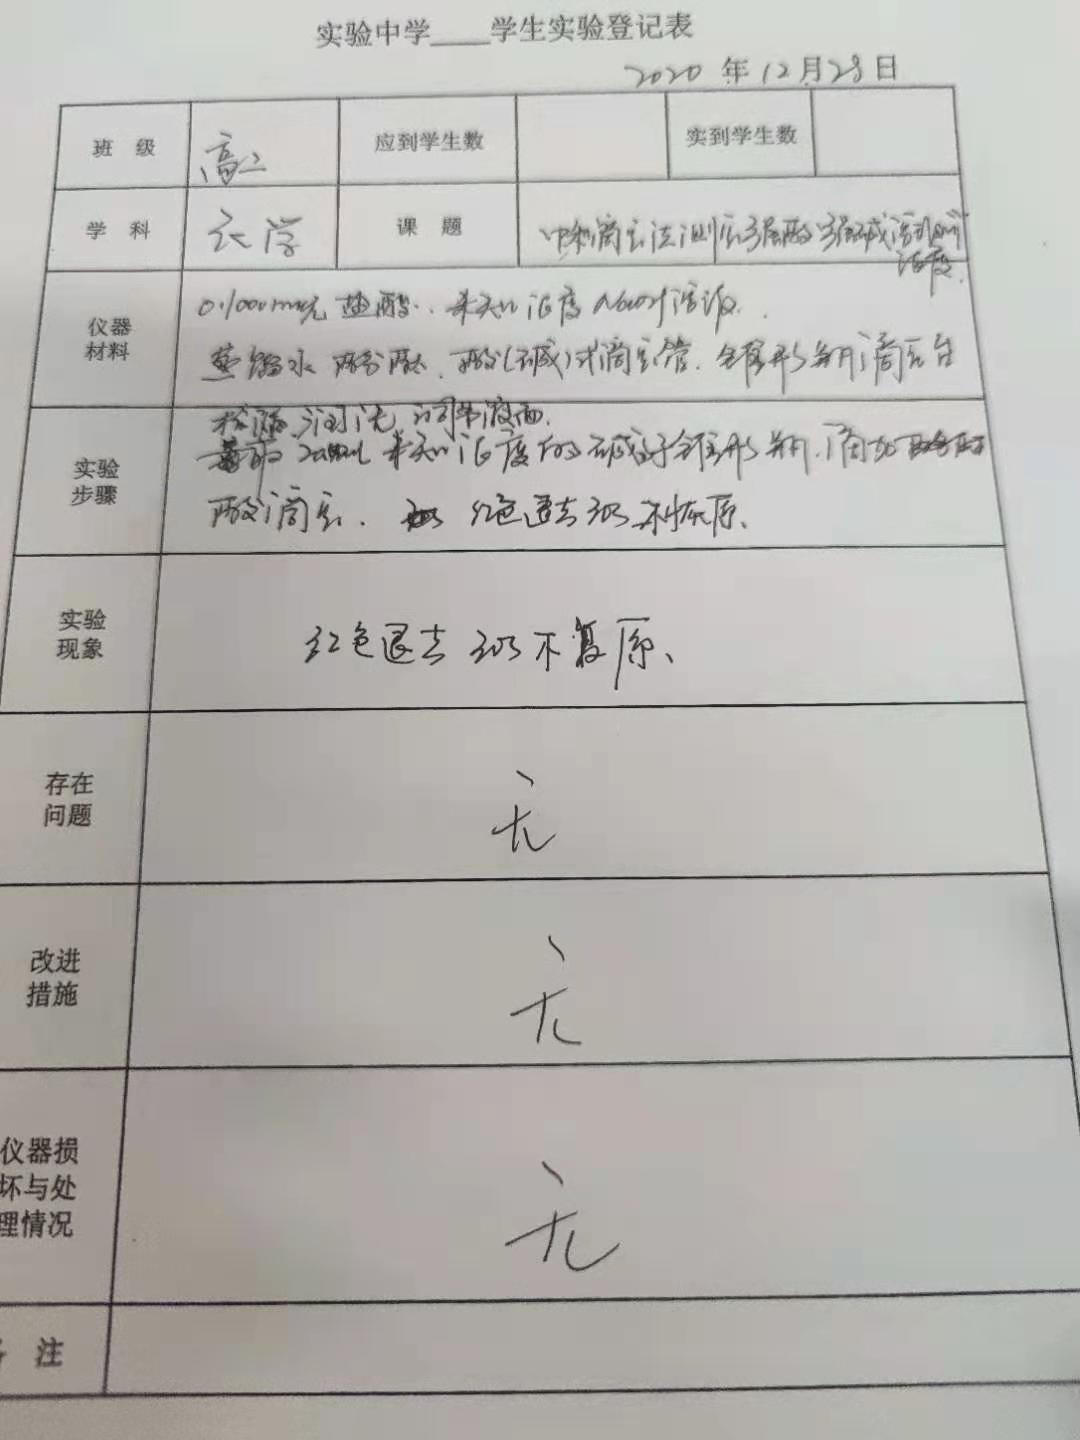 实验中学____学生实验登记表
2020 年 12 月 28 日
班 级 高二 应到学生数 实到学生数
学 科 化学 课 题 中和滴定法测定强酸强碱溶液的
浓度.
仪器
材料
0.1000mol/L 盐酸. 未知浓度 NaOH溶液.
蒸馏水 酚酞. 酸(碱)式滴定管. 锥形瓶 滴定台
实验
步骤
检漏 润洗 调节液面.
未知浓度的碱于锥形瓶. 滴加
酸滴定. 红色退去 30s 不复原.
实验
现象
红色退去 30s 不复原、
存在
问题
无
改进
措施
无
仪器损
坏与处
理情况
无
注